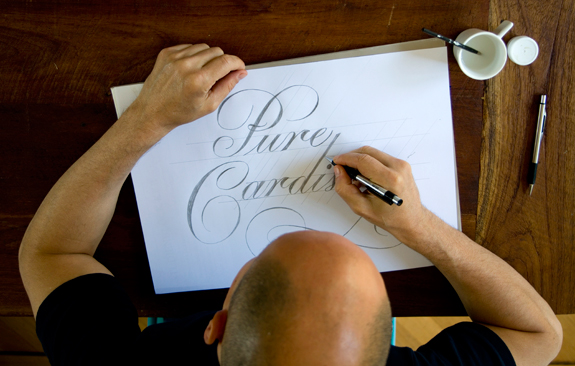 Pure
Cardis